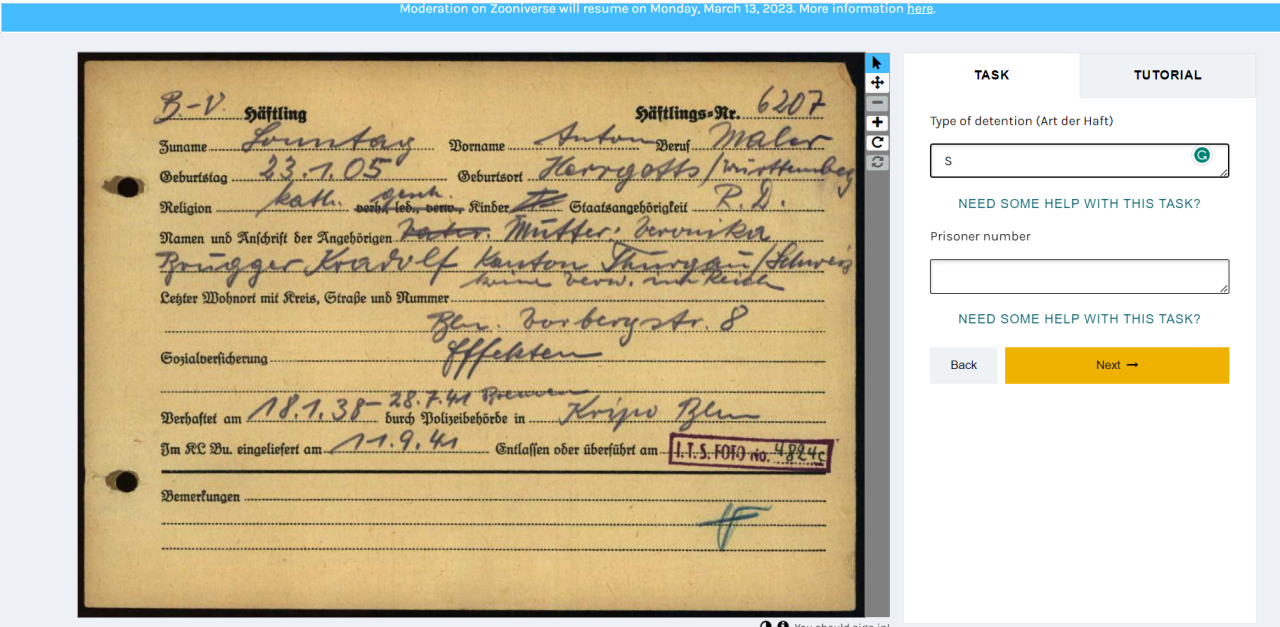 Moderation on Zooniverse will resume on Monday, March 13, 2023. More information here.
B-V. Häftling Häftlings-Nr. 6207
Zuname Sonntag Vorname Anton Beruf Maler
Geburtstag 23.1.05 Geburtsort Herrgotts/Württemberg
Religion kath. gesch. verh., led., verw., Kinder Staatsangehörigkeit R.D.
Namen und Anschrift der Angehörigen Vater. Mutter: Veronika
Brugger Kradolf Kanton Thurgau/Schweiz
keine Verw. im Reich
Letzter Wohnort mit Kreis, Straße und Nummer
Bln. Vorbergstr. 8
Sozialversicherung Effekten
Verhaftet am 18.1.38 - 28.7.41 Bremen durch Polizeibehörde in Kripo Bln
Im KL Bu. eingeliefert am 11.9.41 Entlassen oder überführt am I.T.S. FOTO no. 4824c
Bemerkungen
TASK
TUTORIAL
Type of detention (Art der Haft)
S
NEED SOME HELP WITH THIS TASK?
Prisoner number
NEED SOME HELP WITH THIS TASK?
Back
Next →
You should sign in!